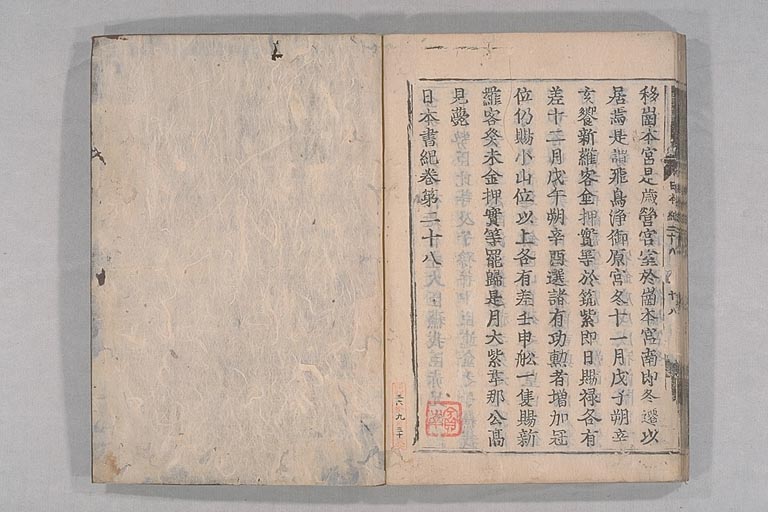 移崗本宮是歳營宮室於崗本宮南即冬遷以
居焉是謂飛鳥淨御原宮冬十一月戊子朔辛
亥饗新羅客金押實等於筑紫即日賜禄各有
差十二月戊午朔辛酉選諸有功勲者増加冠
位仍賜小山位以上各有差壬申舩一隻賜新
羅客癸未金押實等罷歸是月大紫韋那公髙
見薨
日本書紀巻第二十八